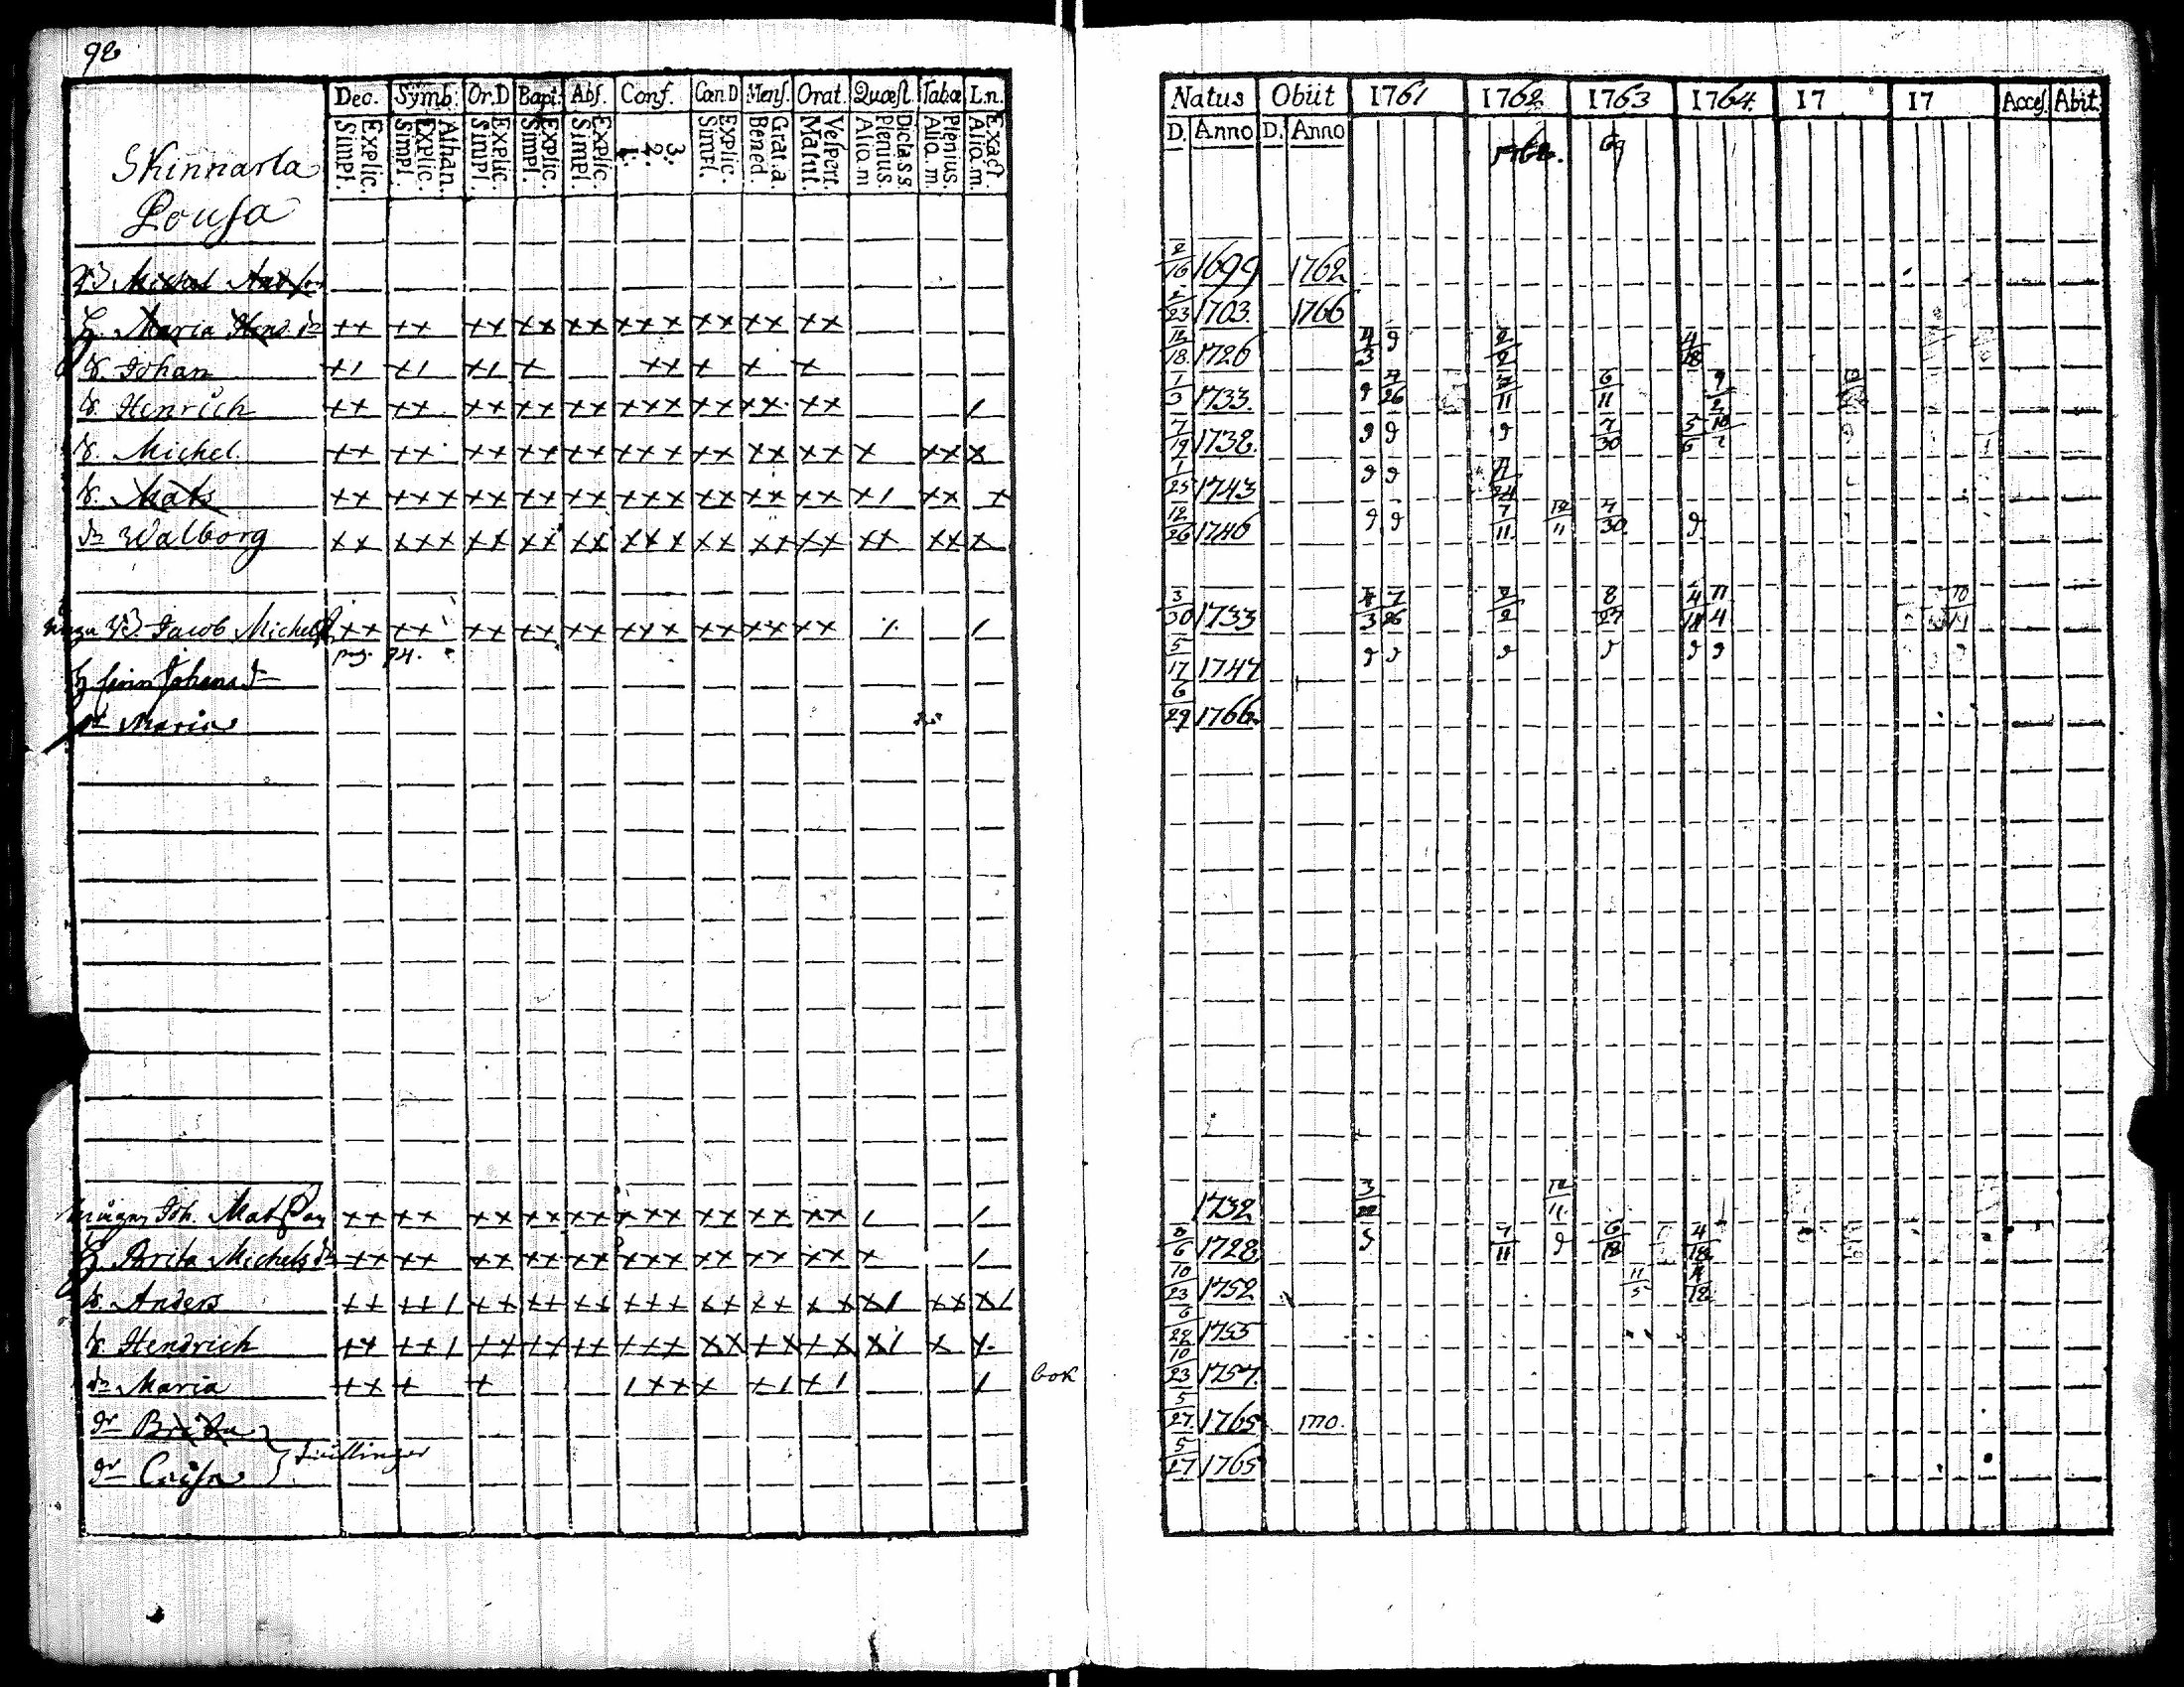 92
Dec. Symb. Or.D Bapt. Abs. Conf. Cœn.D Mens. Orat. Quæst. Tab.œ L.n.
Explic. Simpl. Athan. Explic. Simpl. Explic. Simpl. Explic. Simpl. Explic. Simpl. 3. 2. 1. Explic. Simpl. Grat. a. Bened. Vespert. Matut. Dicta s s Plenius. Aliq. m Plenius. Aliq. m. Exact. Aliq. m.
Skinnarla
Pousa
Michel
h. Maria ++ ++ ++ ++ ++ +++ ++ ++ ++
S. Johan +1 +1 +1 + ++ + + +
S. Henrich ++ ++ ++ ++ ++ +++ ++ ++ ++ 1
S. Michel. ++ ++ ++ ++ ++ +++ ++ ++ ++ + ++ +
S. Mats ++ +++ ++ ++ ++ +++ ++ ++ ++ +1 ++ +
dr Walborg ++ +++ ++ ++ ++ +++ ++ ++ ++ ++ ++ +
Jacob Michels ++ ++ ++ ++ ++ +++ ++ ++ ++ 1 1
pag. 94.
h Johans dr
dr Maria
Joh. Matsson ++ ++ ++ ++ ++ +++ ++ ++ ++ 1 1
h Brita Michels dr ++ ++ ++ ++ ++ +++ ++ ++ ++ + 1
S. Anders ++ ++1 ++ ++ ++ +++ ++ ++ ++ +1 ++ +1
S. Hendrich ++ ++1 ++ ++ ++ +++ ++ ++ ++ +1 + +
dr Maria ++ + + 1++ + +1 +1 1
bok
dr Brita
dr Caisa } Tvillingar
Natus Obiit 1761 1762 1763 1764. 17 17 Acces. Abit.
D. Anno D. Anno
2/16 1699 1762
2/23 1703 1766
12/18. 1726 4/3 9 2/2 4/18
1/3 1733. 9 7/26 7/11 6/11 9/2
7/19 1738. 9 9 9 7/30 5/6 10/2
1/25 1743 9 9 7/24
12/26 1746 9 9 7/11. 12/11 7/30. 9
3/30 1733 4/3 7/26 2/2 8/27 4/18 11/4
5/17 1747 9 9 9 9 9 9 9
6/29 1766.
1732 3/22 12/11
8/6 1728 9 7/11 9 6/18 4/18
10/23 1752 11/5 4/18
6/22 1755
10/23 1757.
5/27. 1765 1770.
5/27 1765